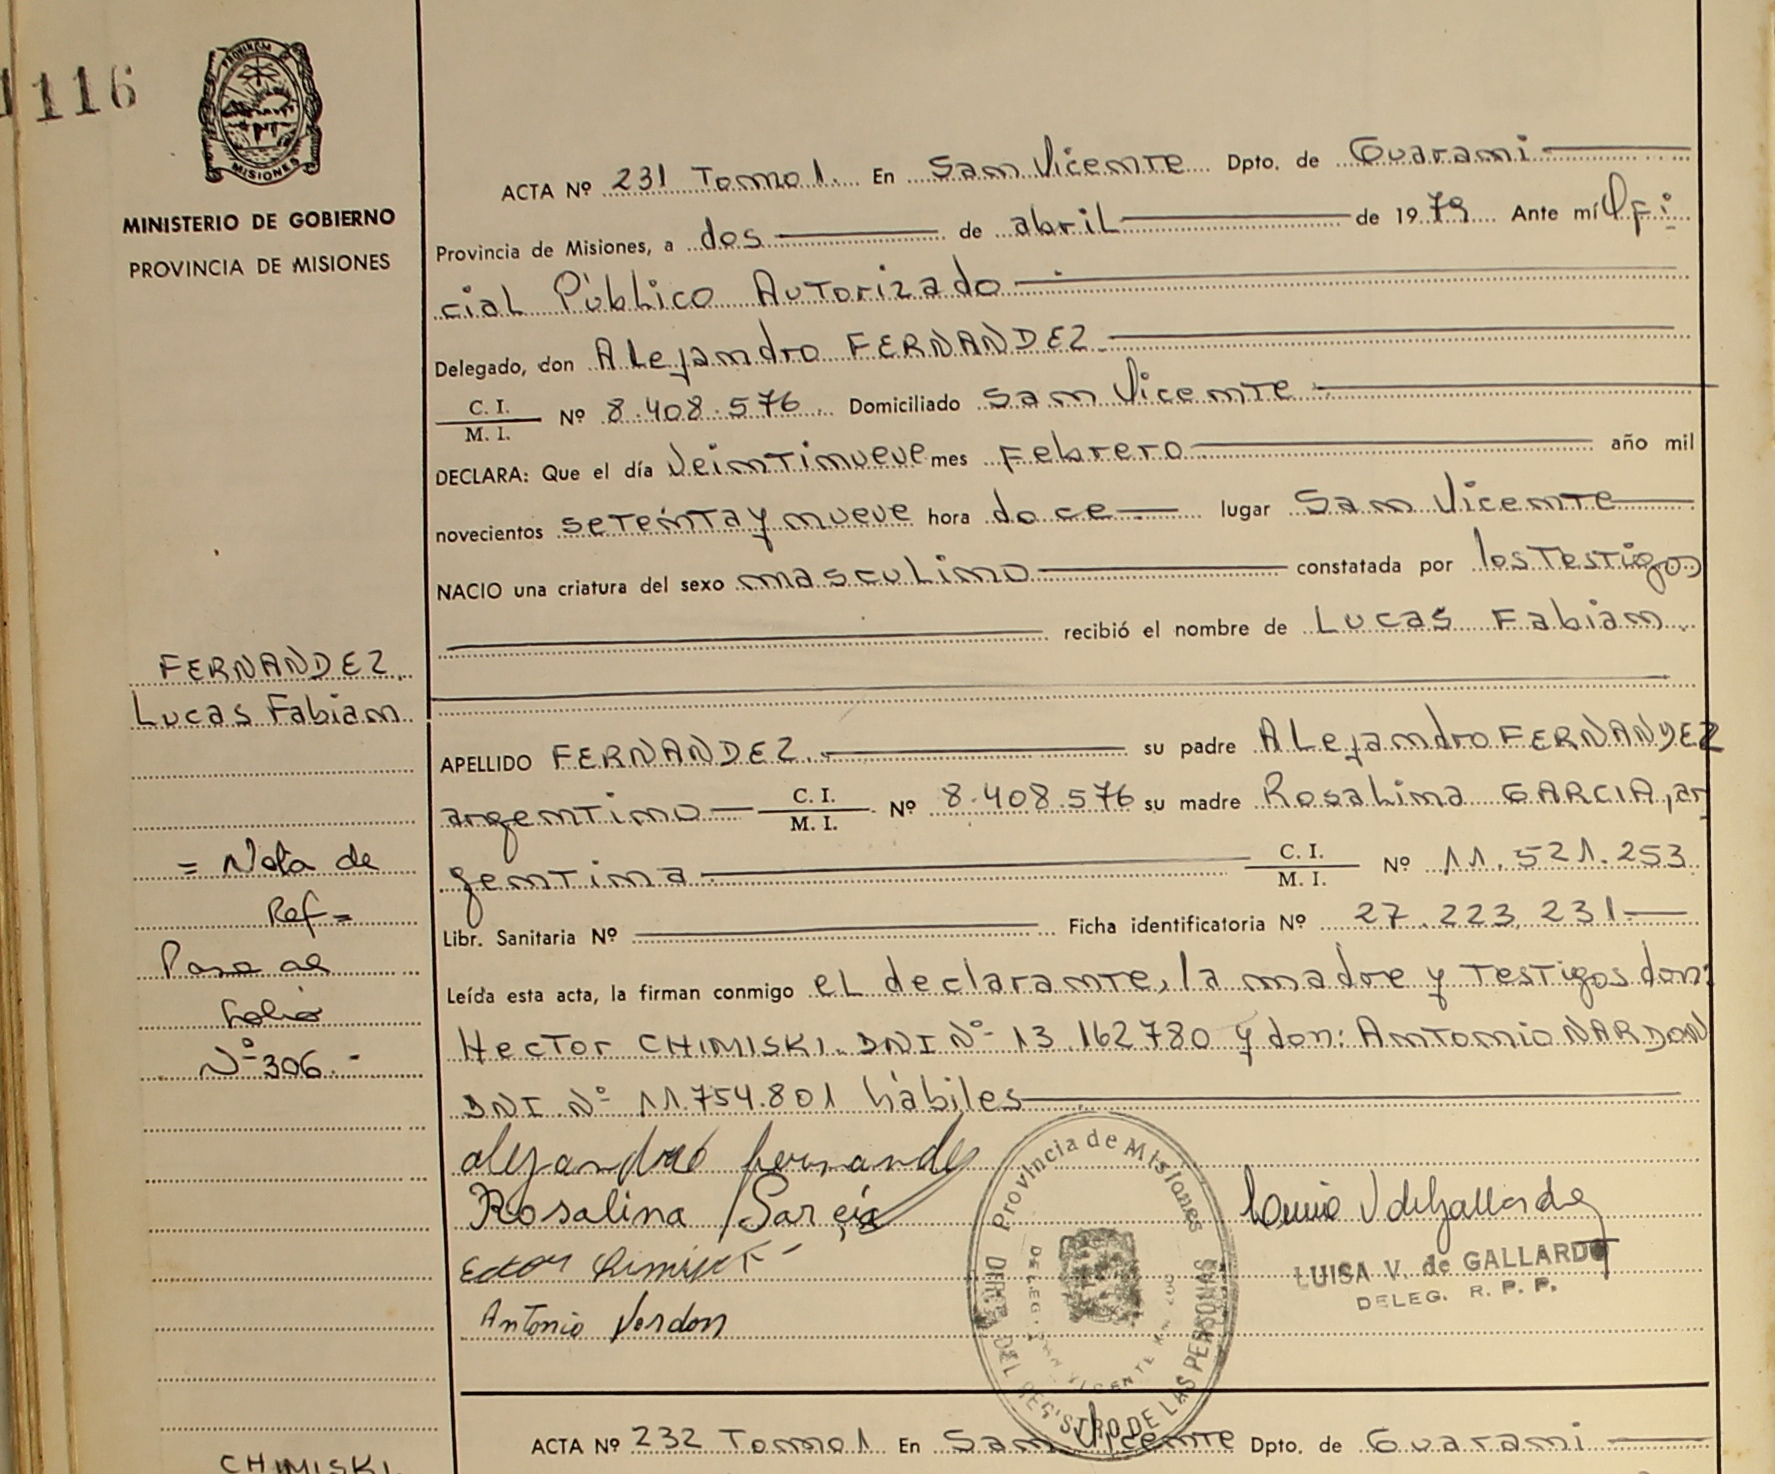 1116
PROVINCIA
MISIONES
MINISTERIO DE GOBIERNO
PROVINCIA DE MISIONES
ACTA Nº 231 Tomo 1. En San Vicente Dpto. de Guarani
Provincia de Misiones, a dos de abril de 1979 Ante mí Ofi
cial Público Autorizado
Delegado, don Alejandro FERNANDEZ
C. I.
M. I. Nº 8.408.576. Domiciliado San Vicente
DECLARA: Que el día veintinueve mes Febrero año mil
novecientos setenta y nueve hora doce lugar San Vicente
NACIO una criatura del sexo masculino constatada por los Testigos
recibió el nombre de Lucas Fabian
FERNANDEZ
Lucas Fabian
APELLIDO FERNANDEZ su padre Alejandro FERNANDEZ
argentino C. I.
M. I. Nº 8.408.576 su madre Rosalina GARCIA, ar
gentina C. I.
M. I. Nº 11.521.253
Libr. Sanitaria Nº Ficha identificatoria Nº 27.223.231
= Nota de
Ref =
Pasa al
folio
Nº 306.-
Leída esta acta, la firman conmigo el declarante, la madre y Testigos don:
Hector CHIMISKI. DNI Nº 13.162780 y don: Antonio NARDON
DNI Nº 11.754.801 hábiles
alejandro fernande
Rosalina Garcia
Antonio
LUISA V. de GALLARDO
DELEG. R. P. P.
Provincia de Misiones
DIREC. DEL REGISTRO DE LAS PERSONAS
DELEG. SAN VICENTE
ACTA Nº 232 Tomo 1 En San Vicente Dpto. de Guarani
CHIMISKI